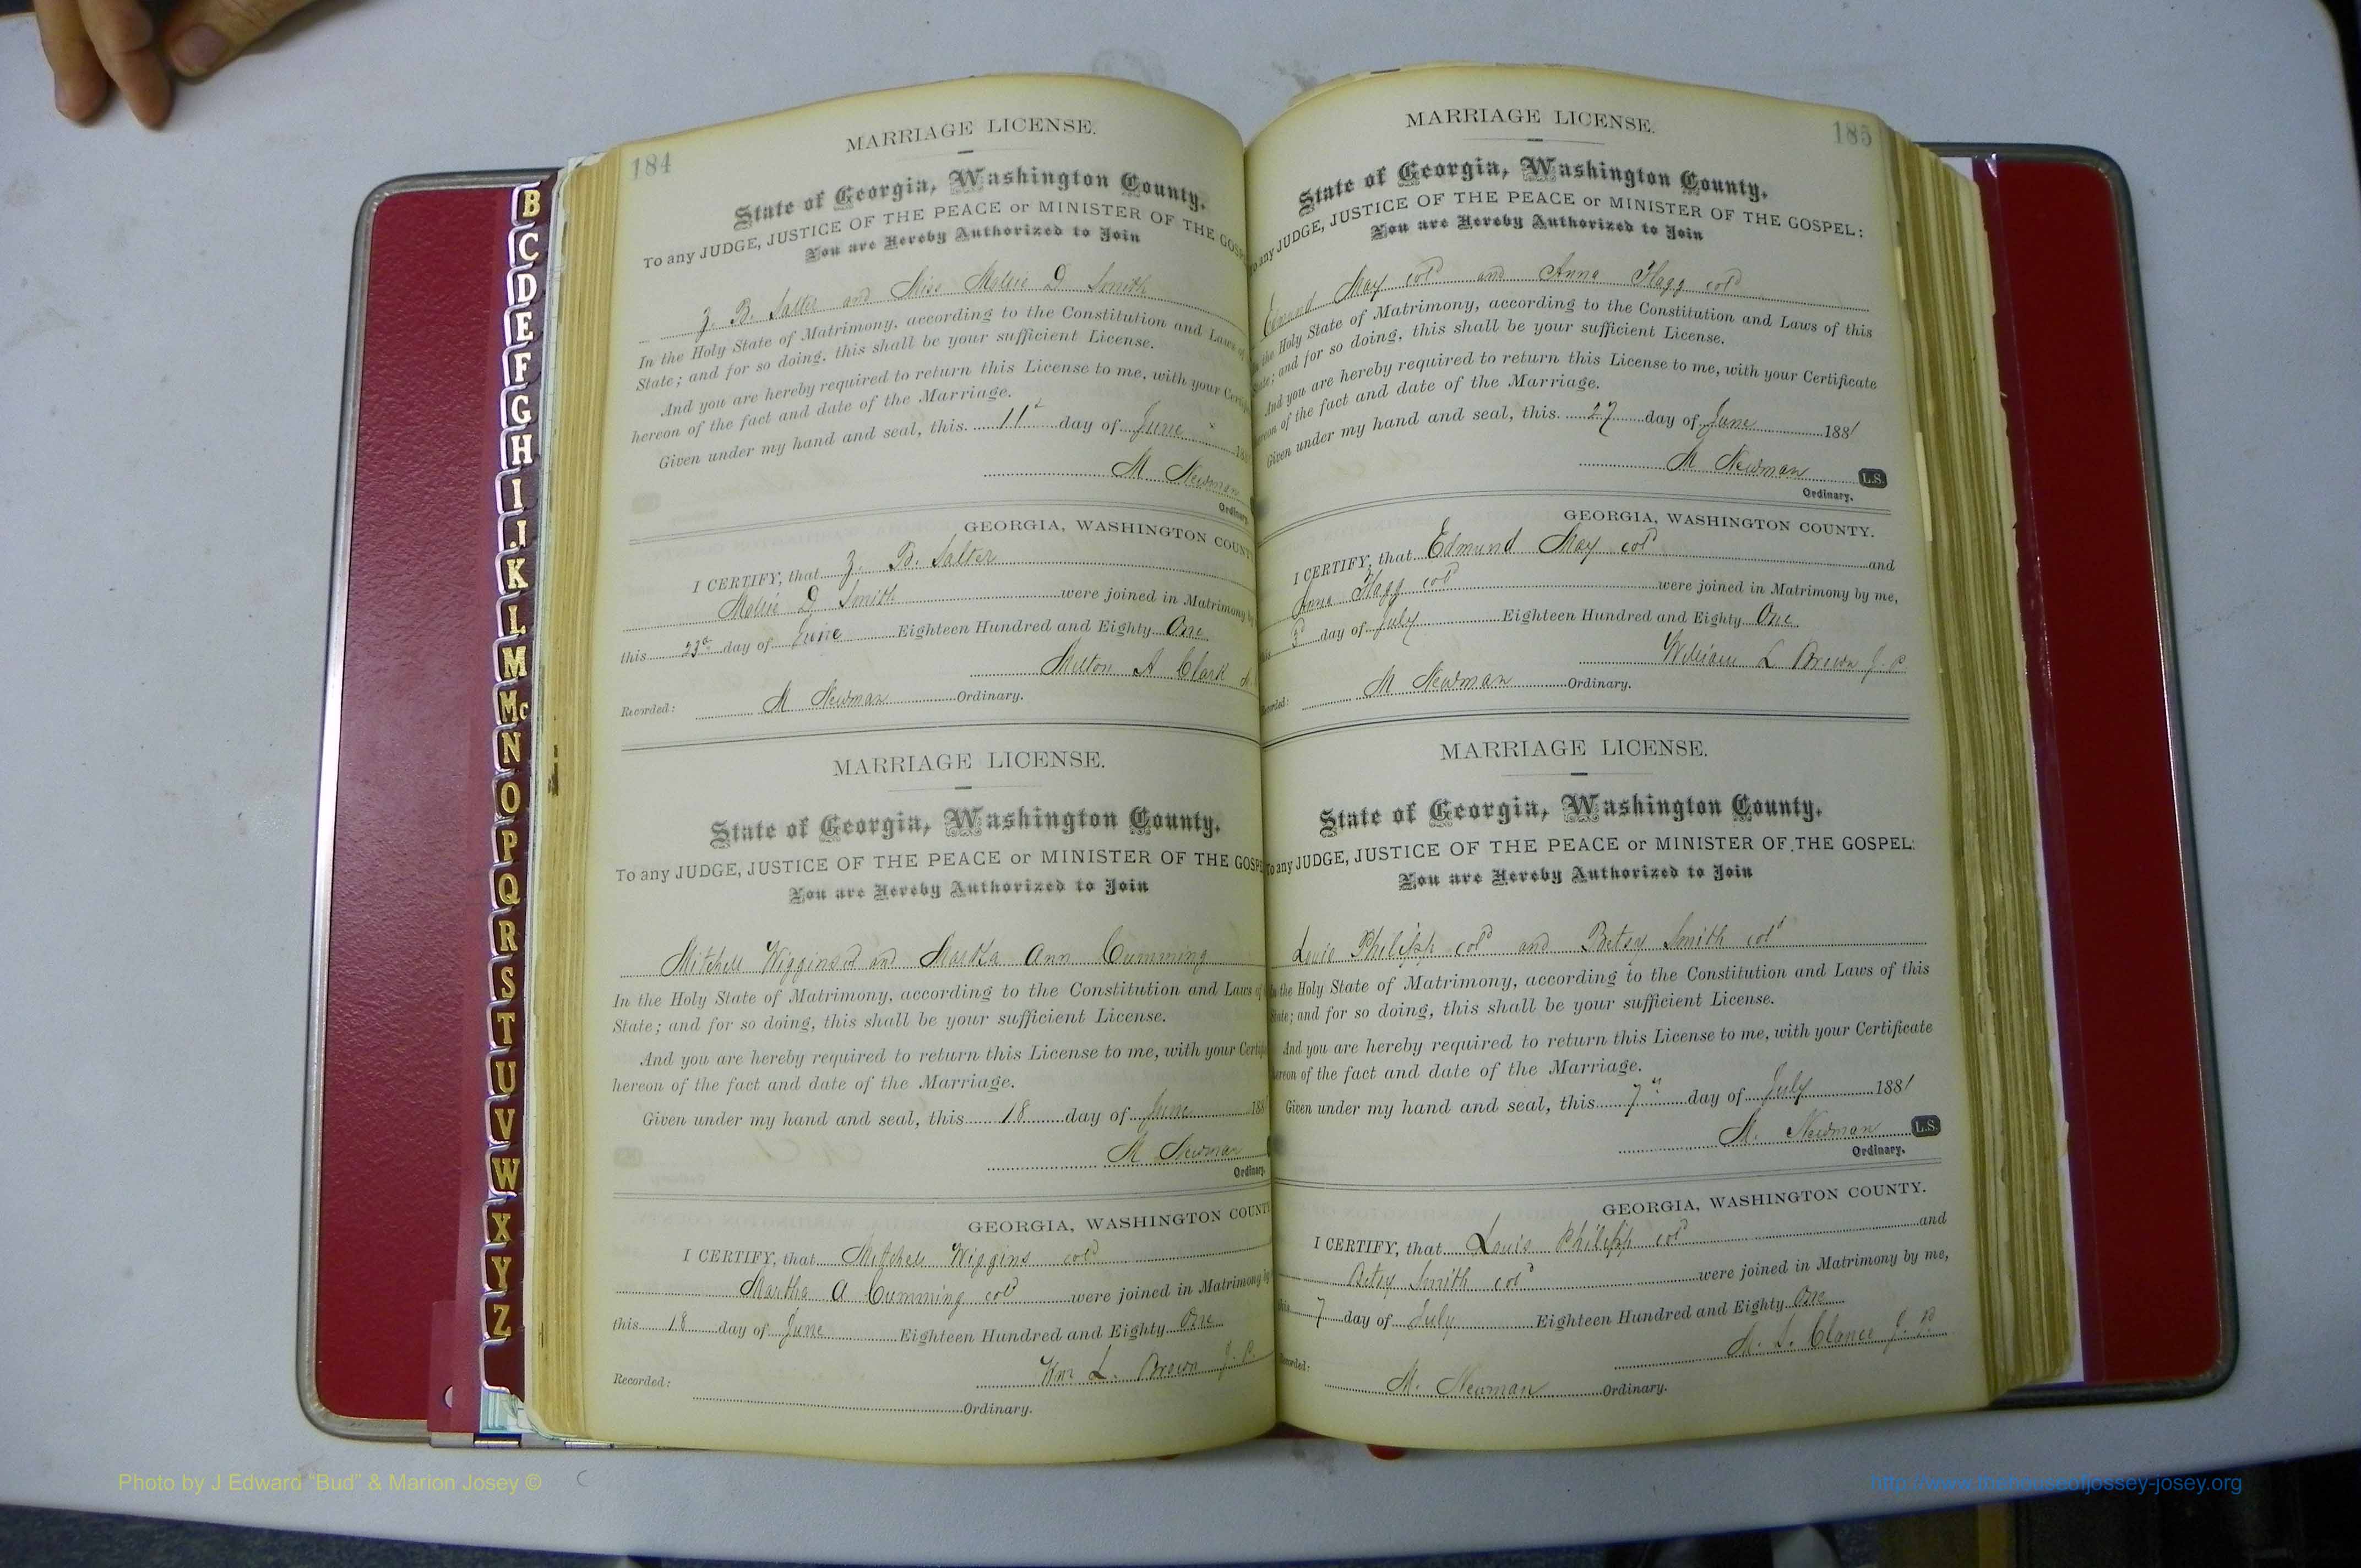 B
C
D
E
F
G
H
I
J
K
L
M
Mc
N
O
P
Q
R
S
T
U
V
W
X
Y
Z
184
MARRIAGE LICENSE.
State of Georgia, Washington County.
To any JUDGE, JUSTICE OF THE PEACE or MINISTER OF THE GOSP
You are Hereby Authorized to Join
Z. B. Salter and Miss Mollie D Smith
In the Holy State of Matrimony, according to the Constitution and Laws of
State; and for so doing, this shall be your sufficient License.
And you are hereby required to return this License to me, with your Certif
hereon of the fact and date of the Marriage.
Given under my hand and seal, this 11 day of June 188
M Newman
Ordinary.
GEORGIA, WASHINGTON COUNT
I CERTIFY, that Z. B. Salter
Mollie D Smith were joined in Matrimony by
this 23d day of June Eighteen Hundred and Eighty One
Milton A Clark
Recorded: M Newman Ordinary.
MARRIAGE LICENSE.
State of Georgia, Washington County.
To any JUDGE, JUSTICE OF THE PEACE or MINISTER OF THE GOSP
You are Hereby Authorized to Join
Mitchell Wiggins and Martha Ann Cumming
In the Holy State of Matrimony, according to the Constitution and Laws of
State; and for so doing, this shall be your sufficient License.
And you are hereby required to return this License to me, with your Certif
hereon of the fact and date of the Marriage.
Given under my hand and seal, this 18 day of June 188
M Newman
Ordinary.
GEORGIA, WASHINGTON COUNT
I CERTIFY, that Mitchell Wiggins cold
Martha A Cumming cold were joined in Matrimony by
this 18 day of June Eighteen Hundred and Eighty One
Wm L. Brown J. P.
Recorded:
Ordinary.
185
MARRIAGE LICENSE.
State of Georgia, Washington County.
To any JUDGE, JUSTICE OF THE PEACE or MINISTER OF THE GOSPEL:
You are Hereby Authorized to Join
Edmund May cold and Anna Flagg cold
In the Holy State of Matrimony, according to the Constitution and Laws of this
State; and for so doing, this shall be your sufficient License.
And you are hereby required to return this License to me, with your Certificate
hereon of the fact and date of the Marriage.
Given under my hand and seal, this 27 day of June 1881
M Newman L.S.
Ordinary.
GEORGIA, WASHINGTON COUNTY.
I CERTIFY, that Edmund May cold and
Anna Flagg cold were joined in Matrimony by me,
this 3d day of July Eighteen Hundred and Eighty One
William L Brown J. P.
Recorded: M Newman Ordinary.
MARRIAGE LICENSE.
State of Georgia, Washington County.
To any JUDGE, JUSTICE OF THE PEACE or MINISTER OF THE GOSPEL:
You are Hereby Authorized to Join
Louis Philipp cold and Betsy Smith cold
In the Holy State of Matrimony, according to the Constitution and Laws of this
State; and for so doing, this shall be your sufficient License.
And you are hereby required to return this License to me, with your Certificate
hereon of the fact and date of the Marriage.
Given under my hand and seal, this 7th day of July 1881
M. Newman L.S.
Ordinary.
GEORGIA, WASHINGTON COUNTY.
I CERTIFY, that Louis Philipp cold and
Betsy Smith cold were joined in Matrimony by me,
this 7 day of July Eighteen Hundred and Eighty One
J. P.
Recorded: M. Newman Ordinary.
Photo by J Edward “Bud” & Marion Josey ©
http://www.thehouseofjossey-josey.org